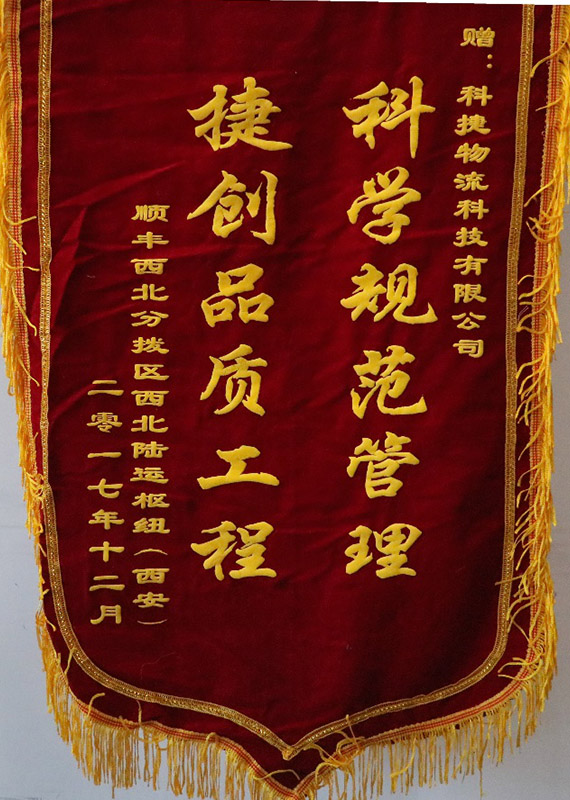 赠：科捷物流科技有限公司
科学规范管理
捷创品质工程
顺丰西北分拨区西北陆运枢纽（西安）
二零一七年十二月